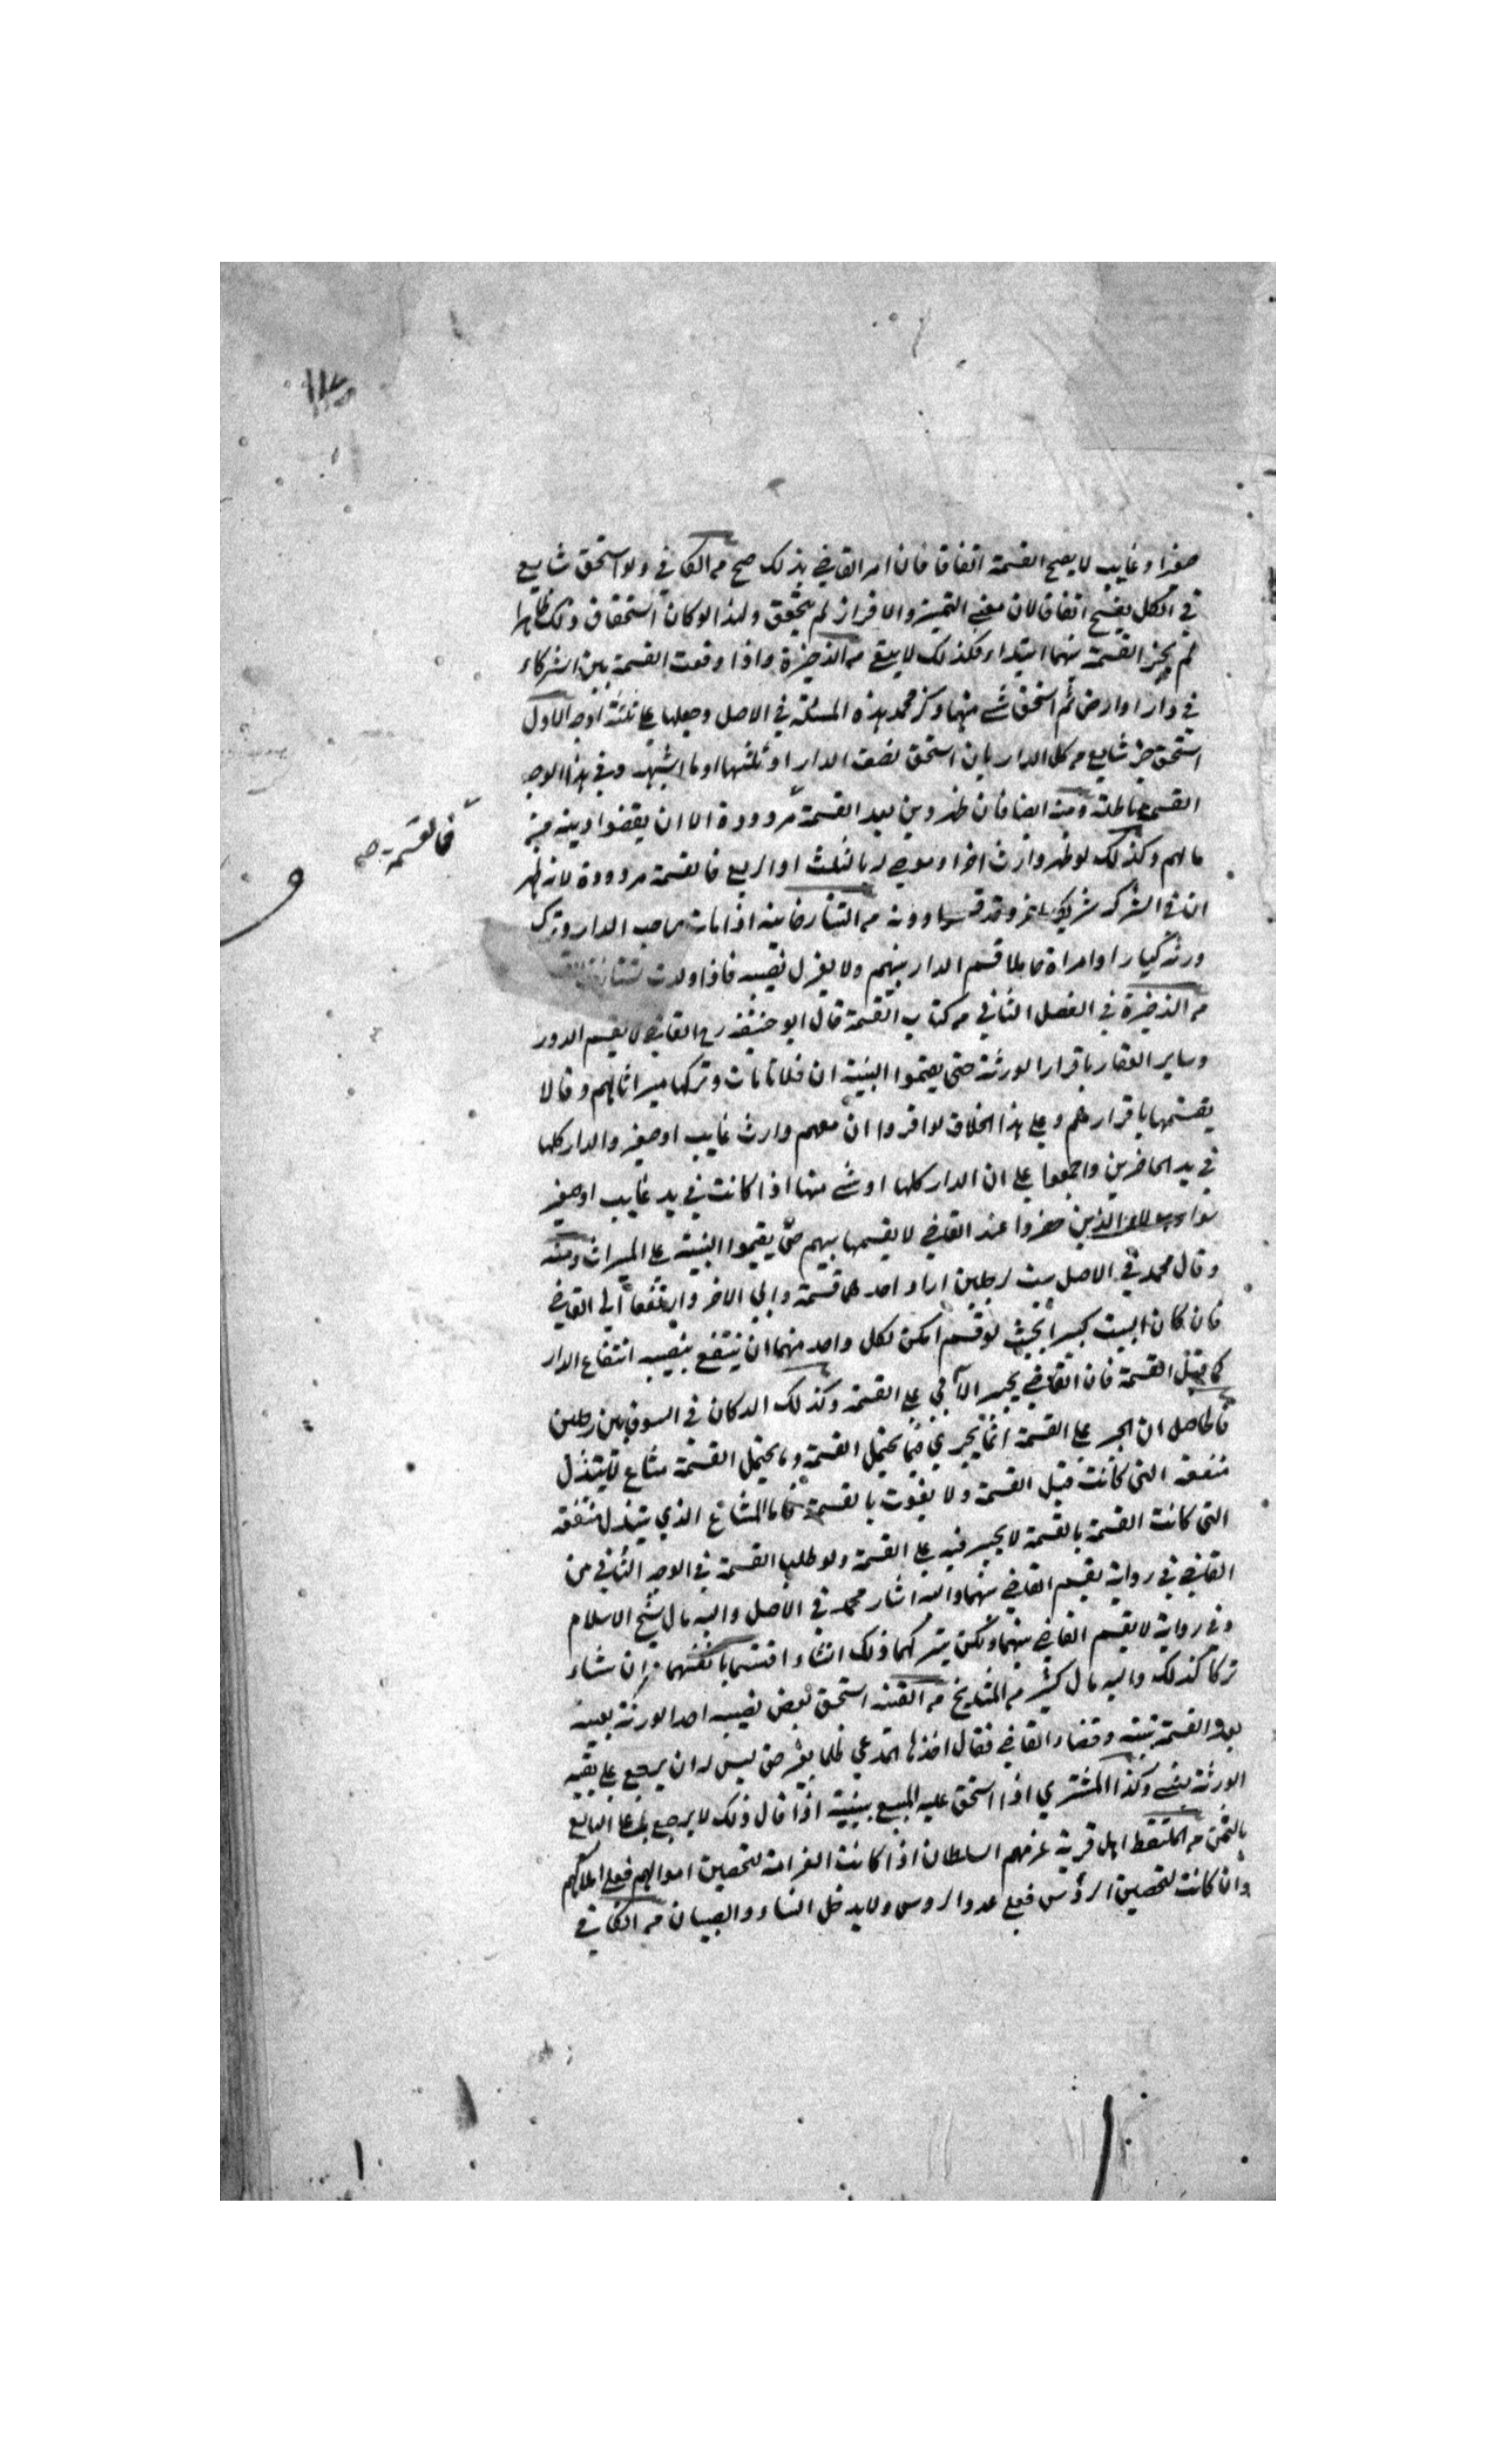 صغيرا وغايب لا يصح القسمة اتفاقا فان امر القاضي بذلك صح من الكافي ولو استحق شايع
في الكل يفسخ اتفاقا لان معنى التميز والافراز لم يتحقق ولهذا لو كان استحقاق ذلك ظاهرا
لم يجز القسمة بينهما ابتداء فكذلك لا يبقى من الذخيرة واذا وقعت القسمة بين الشركاء
في دار او ارض ثم استحق شئ منها ذكر محمد هذه المسئلة في الاصل وجعلها على ثلثة اوجه الاول
استحق جزء شايع من كل الدار بان استحق نصف الدار او ثلثها او ما اشبهه وفي هذا الوجه
القسمة باطلة ومنه ايضا فان ظهر دين بعد القسمة مردودة الا ان يقضوا دينه من
مالهم وكذلك لو ظهر وارث اخر او موصى له بالثلث او الربع فالقسمة مردودة لانه ظهر
فالقسمة صح
ان في الشركة شريك اخر وقد قسموا دونه من التتارخانية اذا مات صاحب الدار وترك
ورثة كبارا وامراة حاملا قسم الدار بينهم ولا يعزل نصيبه فاذا ولدت
من الذخيرة في الفصل الثاني من كتاب القسمة قال ابو حنيفة رح القاضي لا يقسم الدور
وساير العقار باقرار الورثة حتى يقيموا البينة ان فلانا مات وتركها ميراثا لهم وقالا
يقسمها باقرارهم وعلى هذا الخلاف لو اقروا ان معهم وارث غايب او صغير والدار كلها
في يد الحاضرين واجمعوا على ان الدار كلها او شئ منها اذا كانت في يد غايب او صغير
الذين حضروا عند القاضي لا يقسمها بينهم حتى يقيموا البينة على الميراث ومنه
وقال محمد في الاصل بيت لرجلين اراد احدهما قسمة وابى الاخر وارتفعا الى القاضي
فان كان البيت كبيرا بحيث لو قسم امكن لكل واحد منهما ان ينتفع بنصيبه انتفاع الدار
كما قبل القسمة فان القاضي يجبر الآبي على القسمة وكذلك الدكان في السوق بين رجلين
فالحاصل ان الجبر على القسمة انما يجري فيما يحتمل القسمة وما يحتمل القسمة مشاع لا يتبدل
منفعة التي كانت قبل القسمة ولا يفوت بالقسمة فاما المشاع الذي يتبدل منفعة
التي كانت القسمة بالقسمة لا يجبر فيه على القسمة ولو طلبا القسمة في الوجه الثاني من
القاضي في رواية يقسم القاضي بينهما واليه اشار محمد في الاصل واليه مال شيخ الاسلام
وفي رواية لا يقسم القاضي بينهما ولكن يتركهما وذلك ان شاء اقتسما بانفسهما وان شاء
تركا كذلك واليه مال كثير من المشايخ من القنية استحق بعض نصيب احد الورثة بعينه
بعد القسمة ببينة وقضاء القاضي فقال اخذها المدعي ظلما بغير حق ليس له ان يرجع على بقية
الورثة بشئ وكذا المشتري اذا استحق عليه المبيع ببينة اذا قال ذلك لا يرجع على البايع
بالثمن من الملتقط اهل قرية غرمهم السلطان اذا كانت الغرامة لتحصين اموالهم فعلى املاكهم
وان كانت لتحصين الرؤس فعلى عدد الروس ولا يدخل النساء والصبيان من الكافي